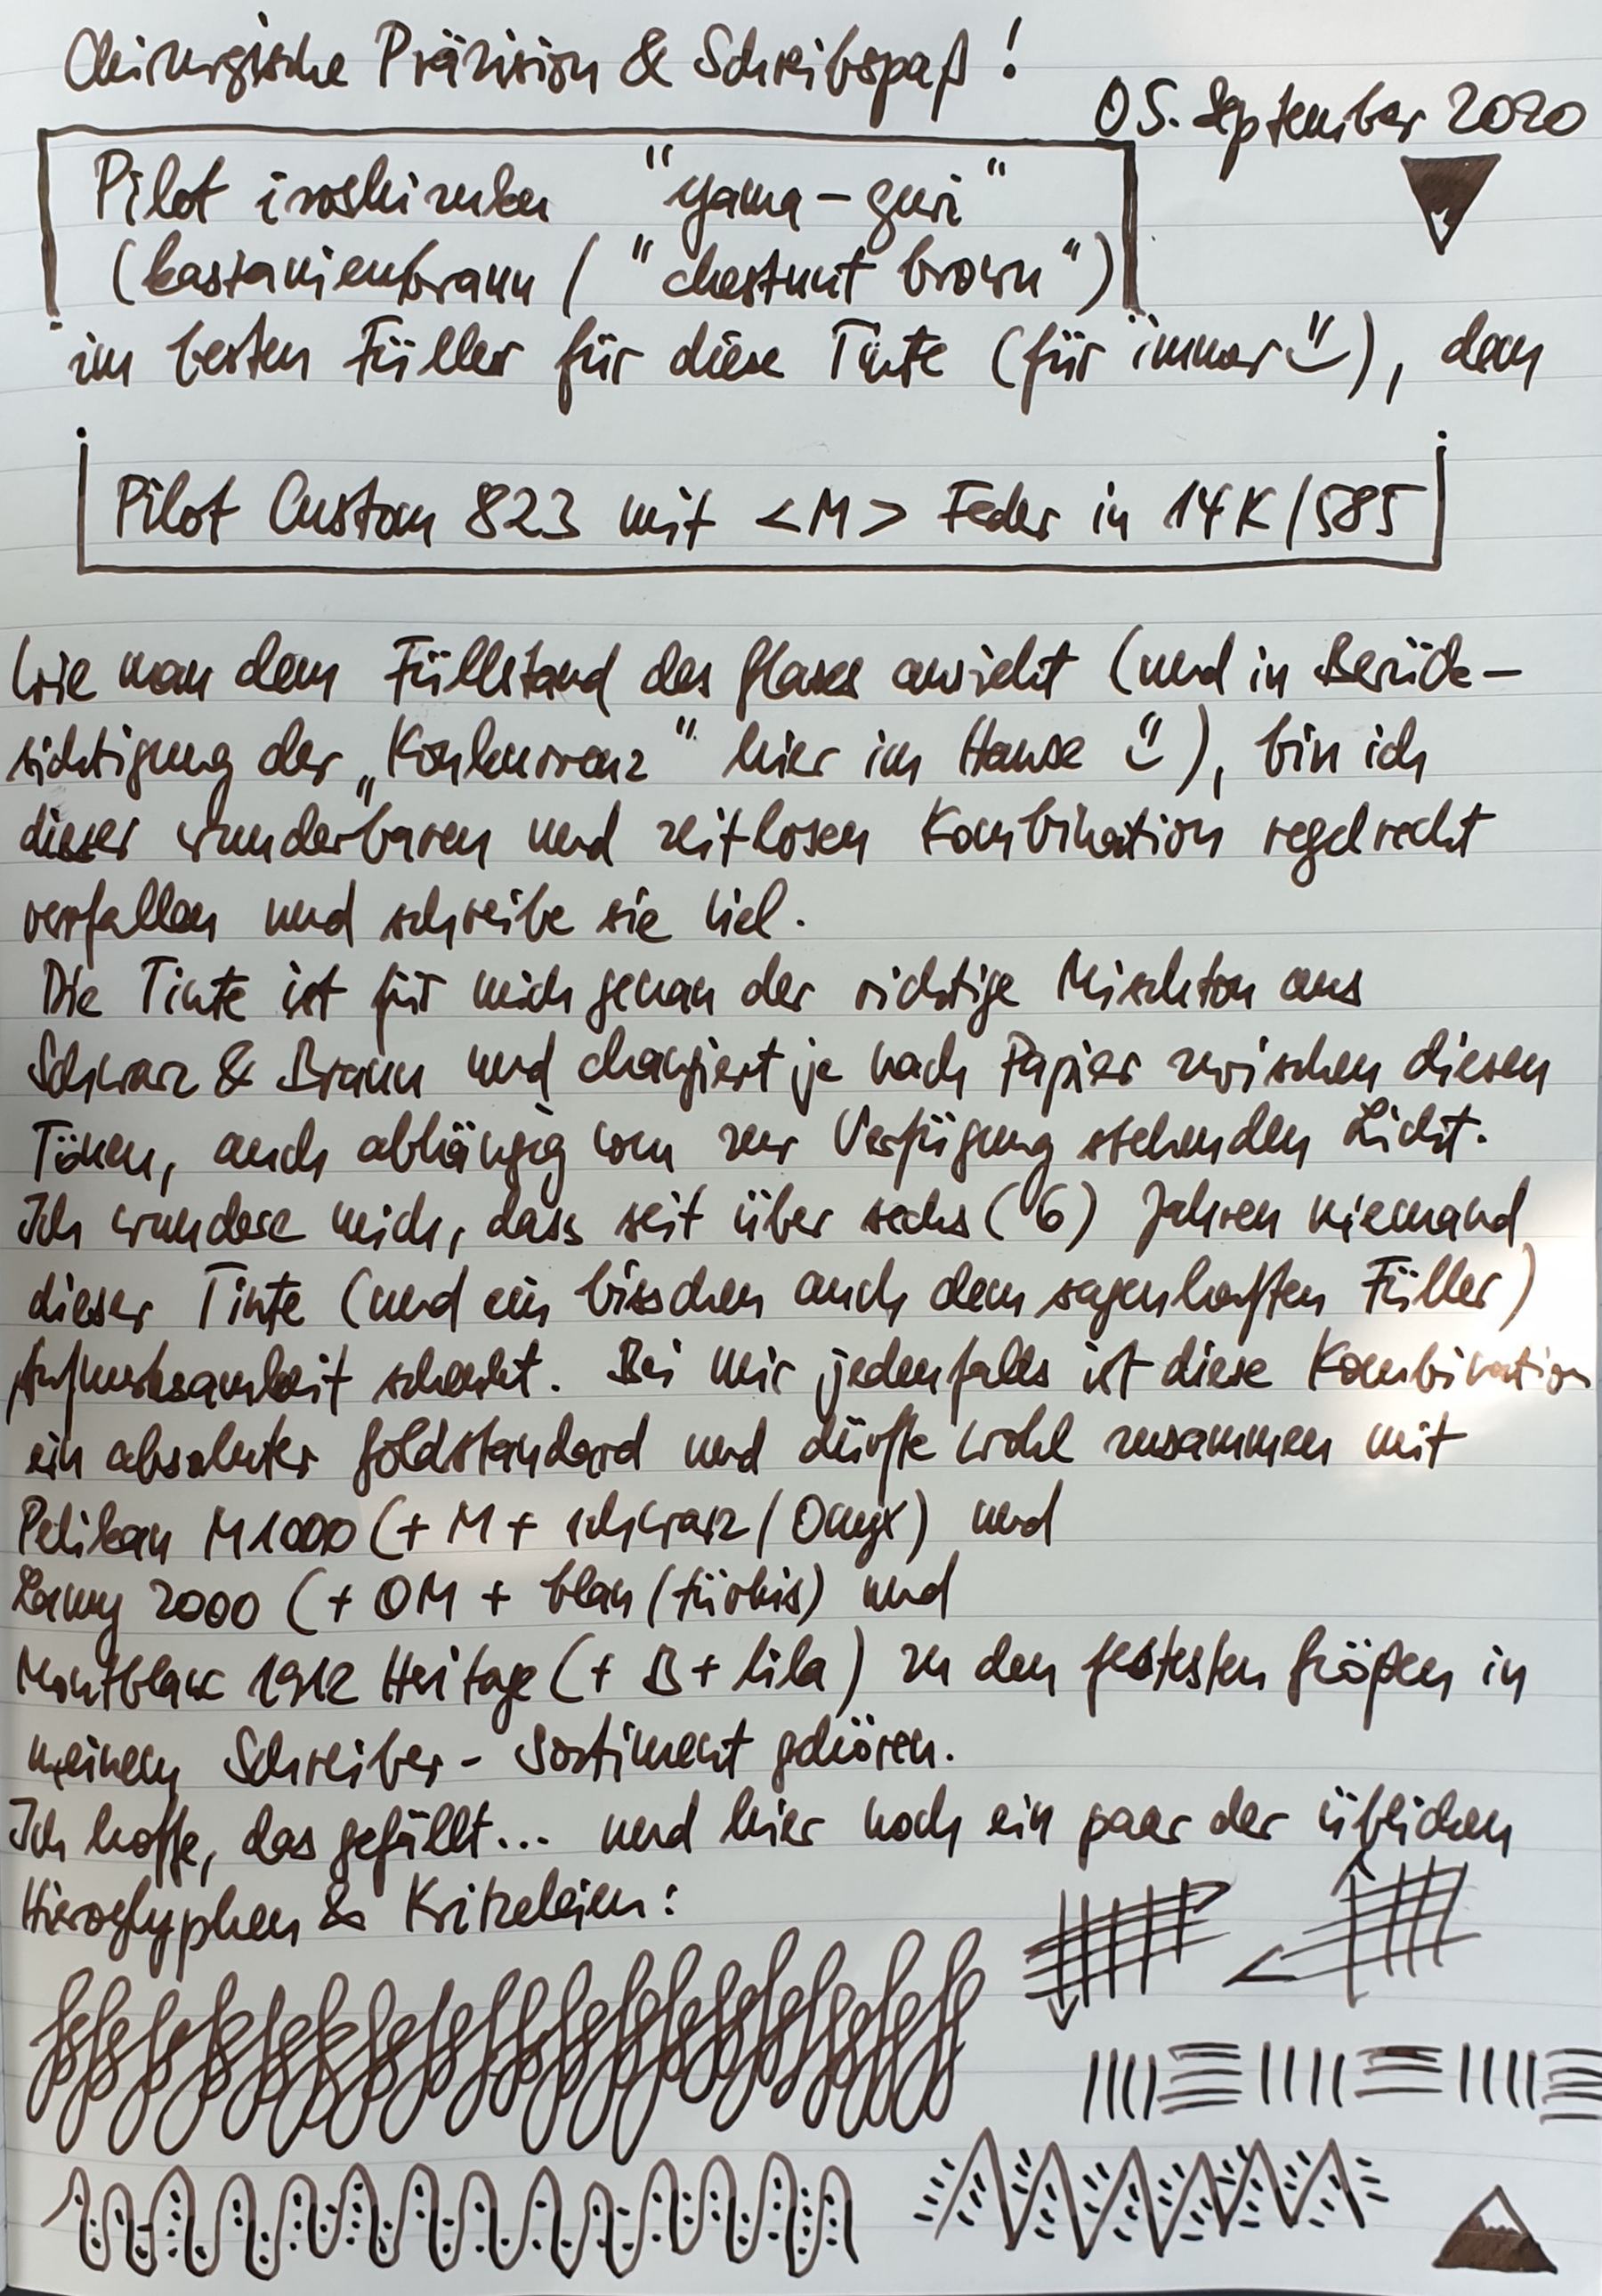 Chirurgische Präzision & Schreibspaß!
05. September 2020
Pilot iroshizuku "yama-guri"
(kastanienbraun / "chestnut brown")
im besten Füller für diese Tinte (für immer ü), dem
Pilot Custom 823 mit <M> Feder in 14K/585
Wie man dem Füllstand des Glases ansieht (und in Berück-
sichtigung der „Konkurrenz" hier im Hause ü), bin ich
dieser wunderbaren und zeitlosen Kombination regelrecht
verfallen und schreibe sie viel.
Die Tinte ist für mich genau der richtige Mischton aus
Schwarz & Braun und changiert je nach Papier zwischen diesen
Tönen, auch abhängig vom zur Verfügung stehenden Licht.
Ich wundere mich, dass seit über sechs (6) Jahren niemand
dieser Tinte (und ein bisschen auch dem sagenhaften Füller)
Aufmerksamkeit schenkt. Bei mir jedenfalls ist diese Kombination
ein absoluter Goldstandard und dürfte wohl zusammen mit
Pelikan M1000 (+ M + schwarz/Onyx) und
Lamy 2000 (+ OM + blau/türkis) und
Montblanc 1912 Heritage (+ B + lila) zu den festesten Größen in
meinem Schreiber-Sortiment gehören.
Ich hoffe, das gefällt... und hier noch ein paar der üblichen
Hieroglyphen & Kritzeleien: